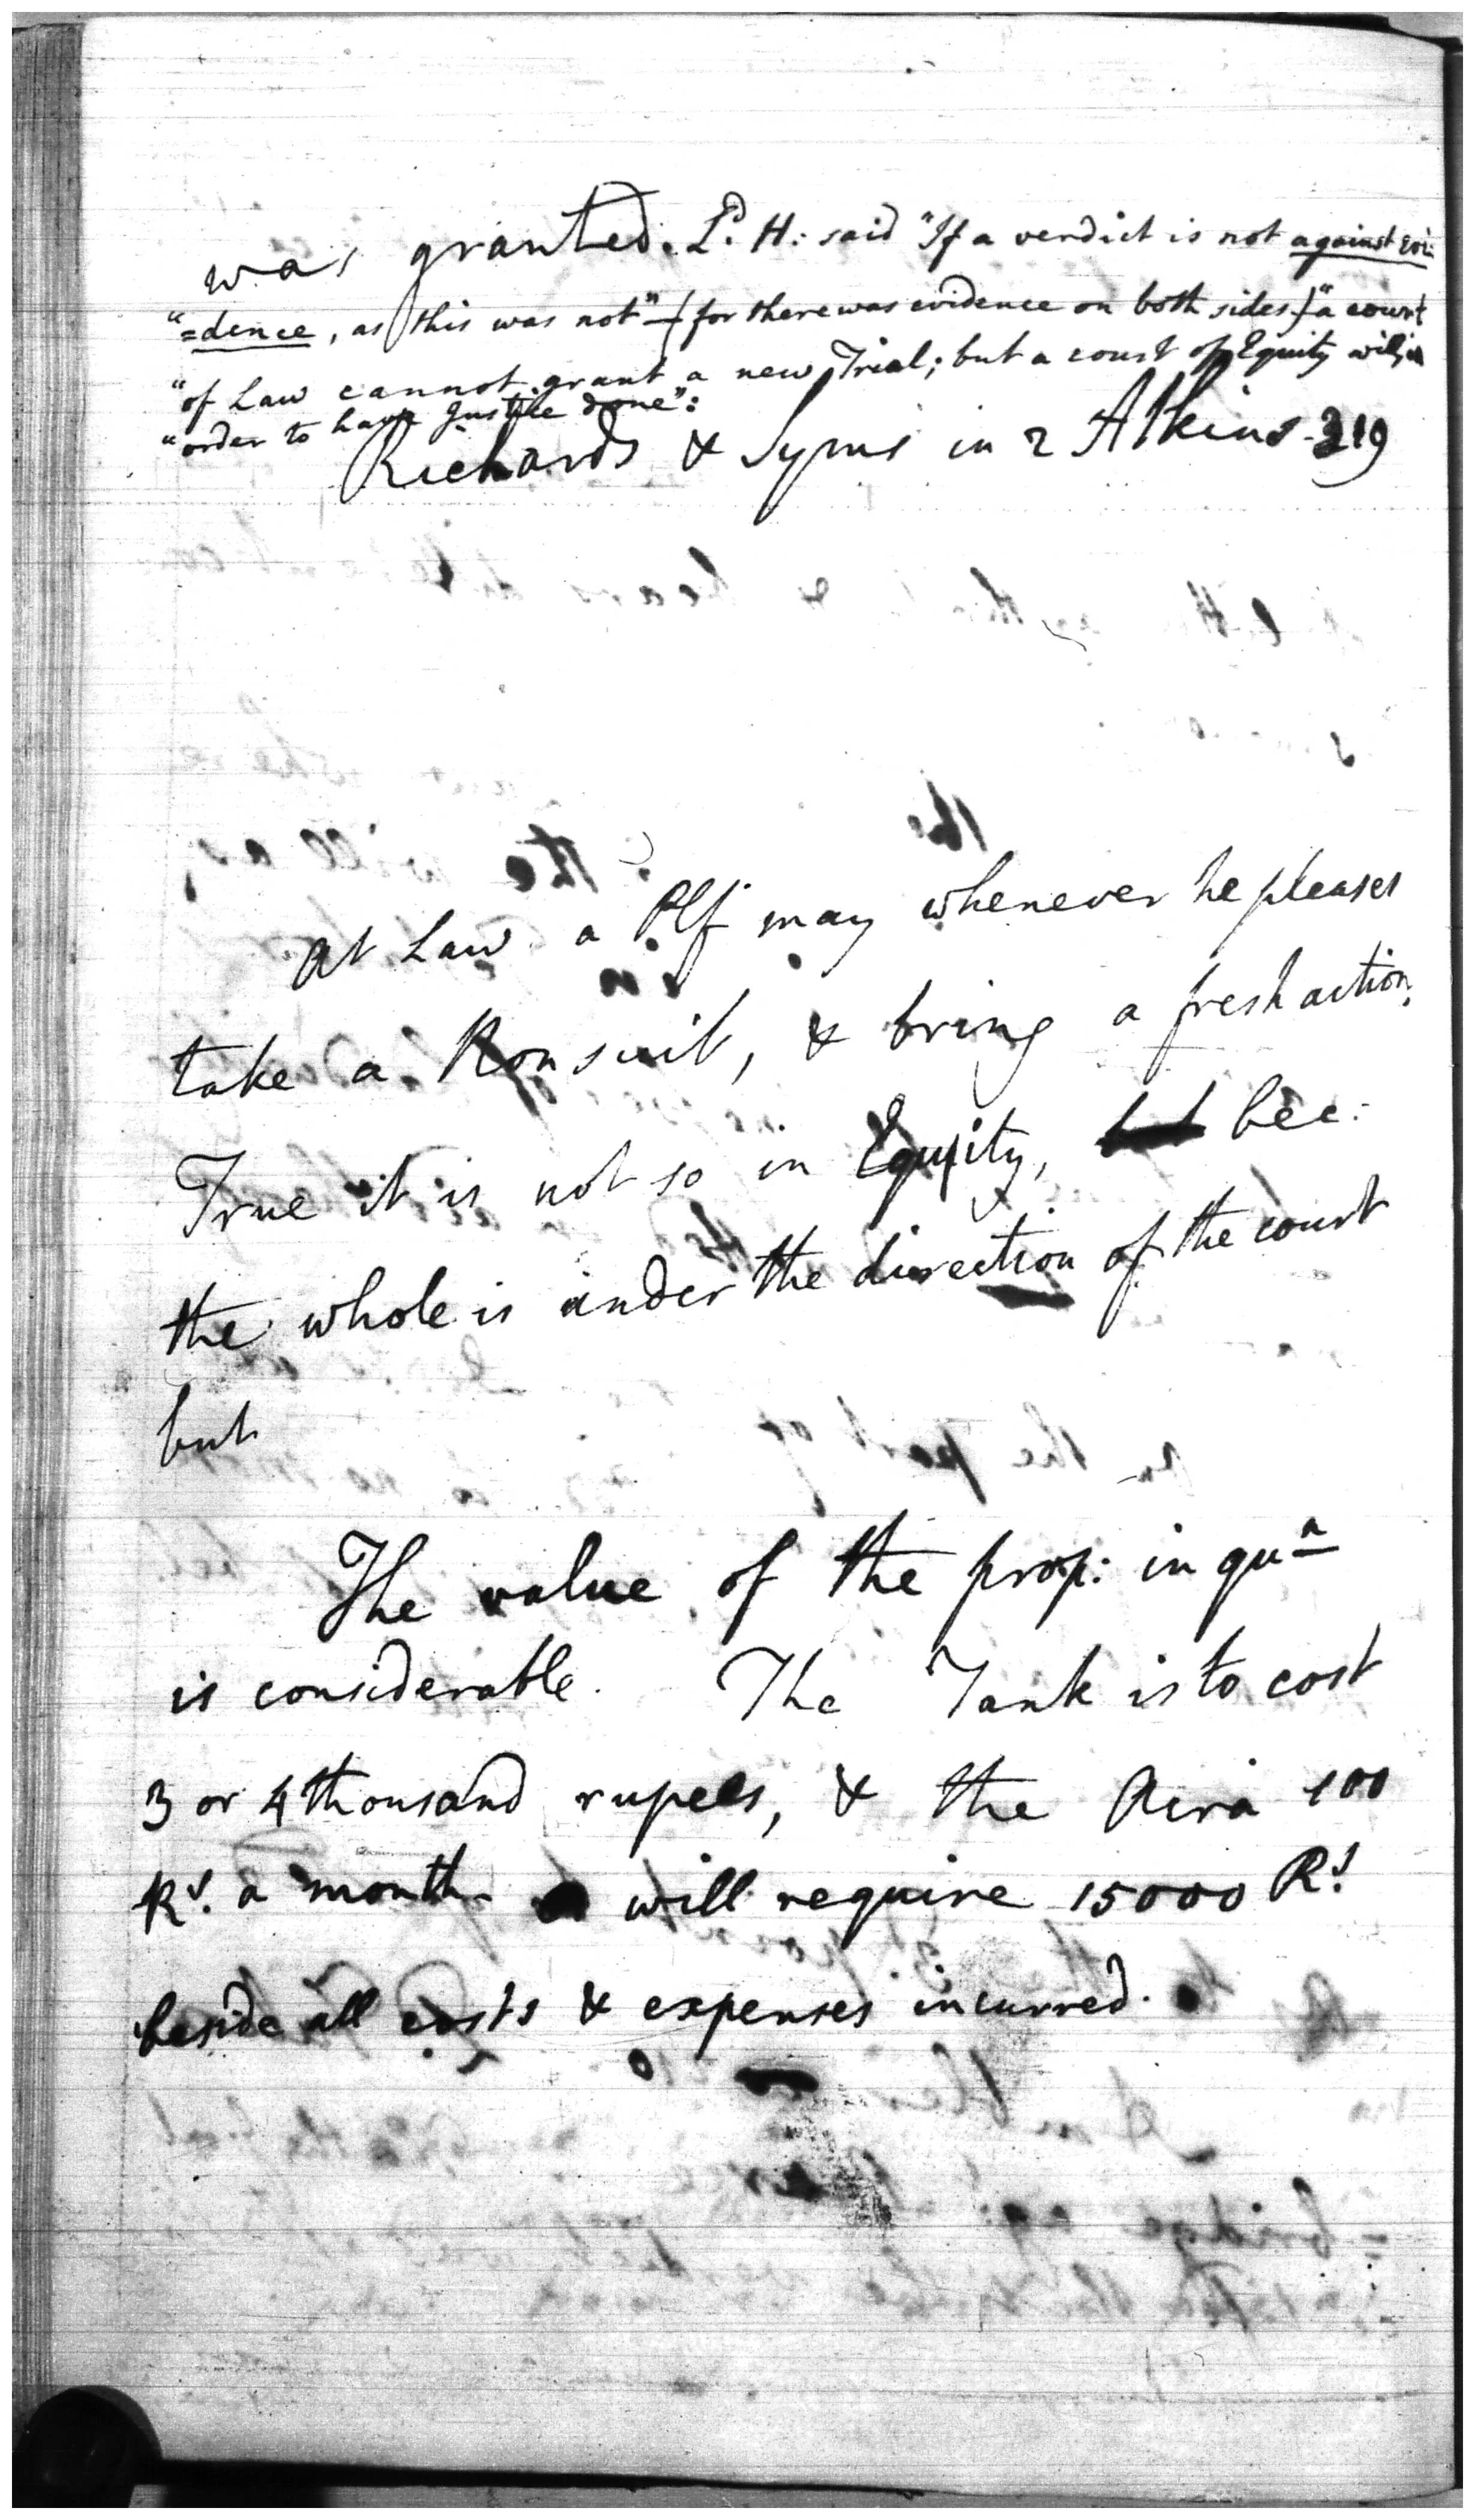 was granted. L.^d H: said "If a verdict is not against evi:
"=dence, as this was not"—(for there was evidence on both sides) "a court
"of Law cannot grant a new Trial; but a court of Equity will, in
"order to have Justice done":
Richards & Syms in 2 Atkins 319
At Law a Plf may whenever he pleases
take a Nonsuit, & bring a fresh action.
True it is not so in Equity, bec:
the whole is under the direction of the court
but
The value of the prop: in qu^n
is considerable. The Tank is to cost
3 or 4 thousand rupees, & the 100
R^s. a month will require 15000 R^s.
beside all costs & expenses incurred.